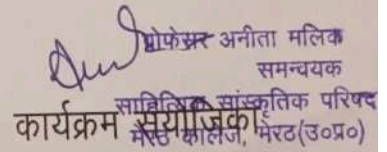 प्रोफेसर अनीता मलिक
समन्वयक
साहित्यिक सांस्कृतिक परिषद
कार्यक्रम संयोजिका
मेरठ कॉलेज, मेरठ(उ०प्र०)